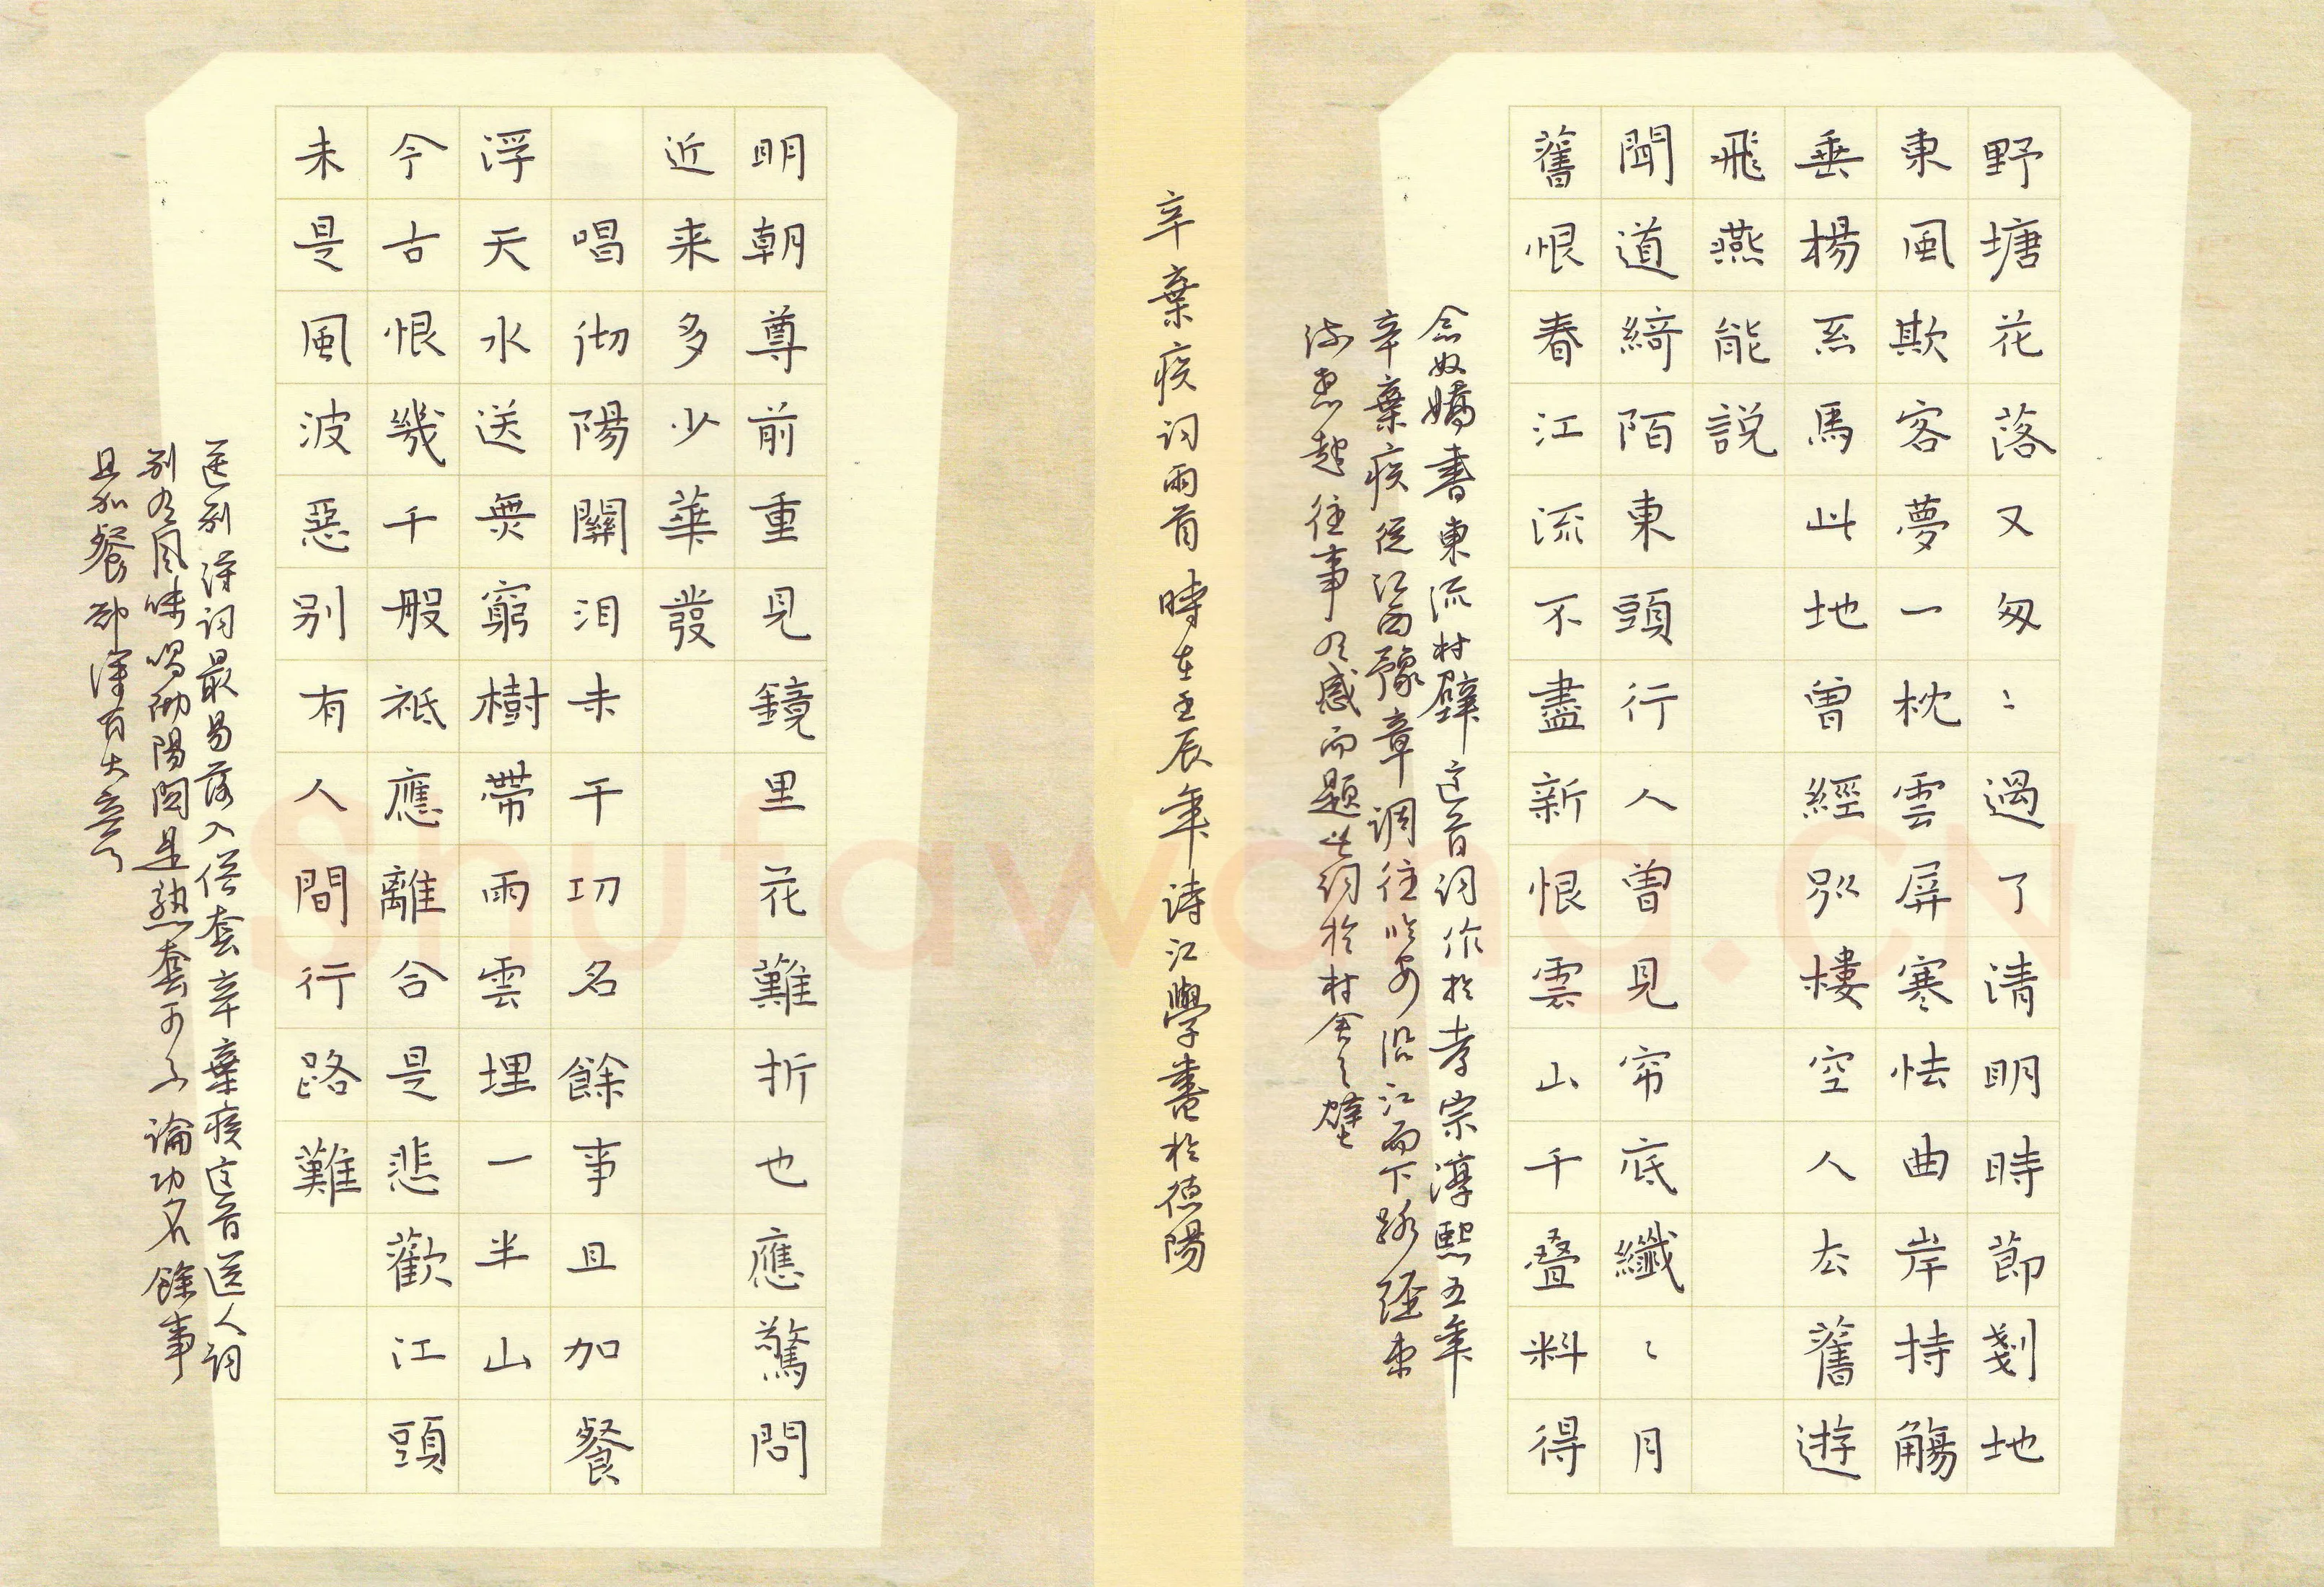 野塘花落又匆〻過了清明時節剗地
東風欺客夢一枕雲屏寒怯曲岸持觴
垂楊系馬此地曾經別樓空人去舊遊
飛燕能説
聞道綺陌東頭行人曾見帘底纖〻月
舊恨春江流不盡新恨雲山千疊料得
念奴嬌書東流村壁这首词作於孝宗淳熙五年
辛棄疾從江西豫章调往临安沿江而下路经東
流思起往事有感而题此词於村舍之壁
辛棄疾词两首時在壬辰年诗江學書於德陽
明朝尊前重見鏡里花難折也應驚問
近来多少華發
唱彻陽關泪未干功名餘事且加餐
浮天水送無窮樹帶雨雲埋一半山
今古恨幾千般衹應離合是悲歡江頭
未是風波惡別有人間行路難
送别诗词最易落入俗套辛棄疾这首送人词
别有風味唱彻陽関是熟套可不論功名餘事
且加餐却渾有大意了
Shufawang.CN